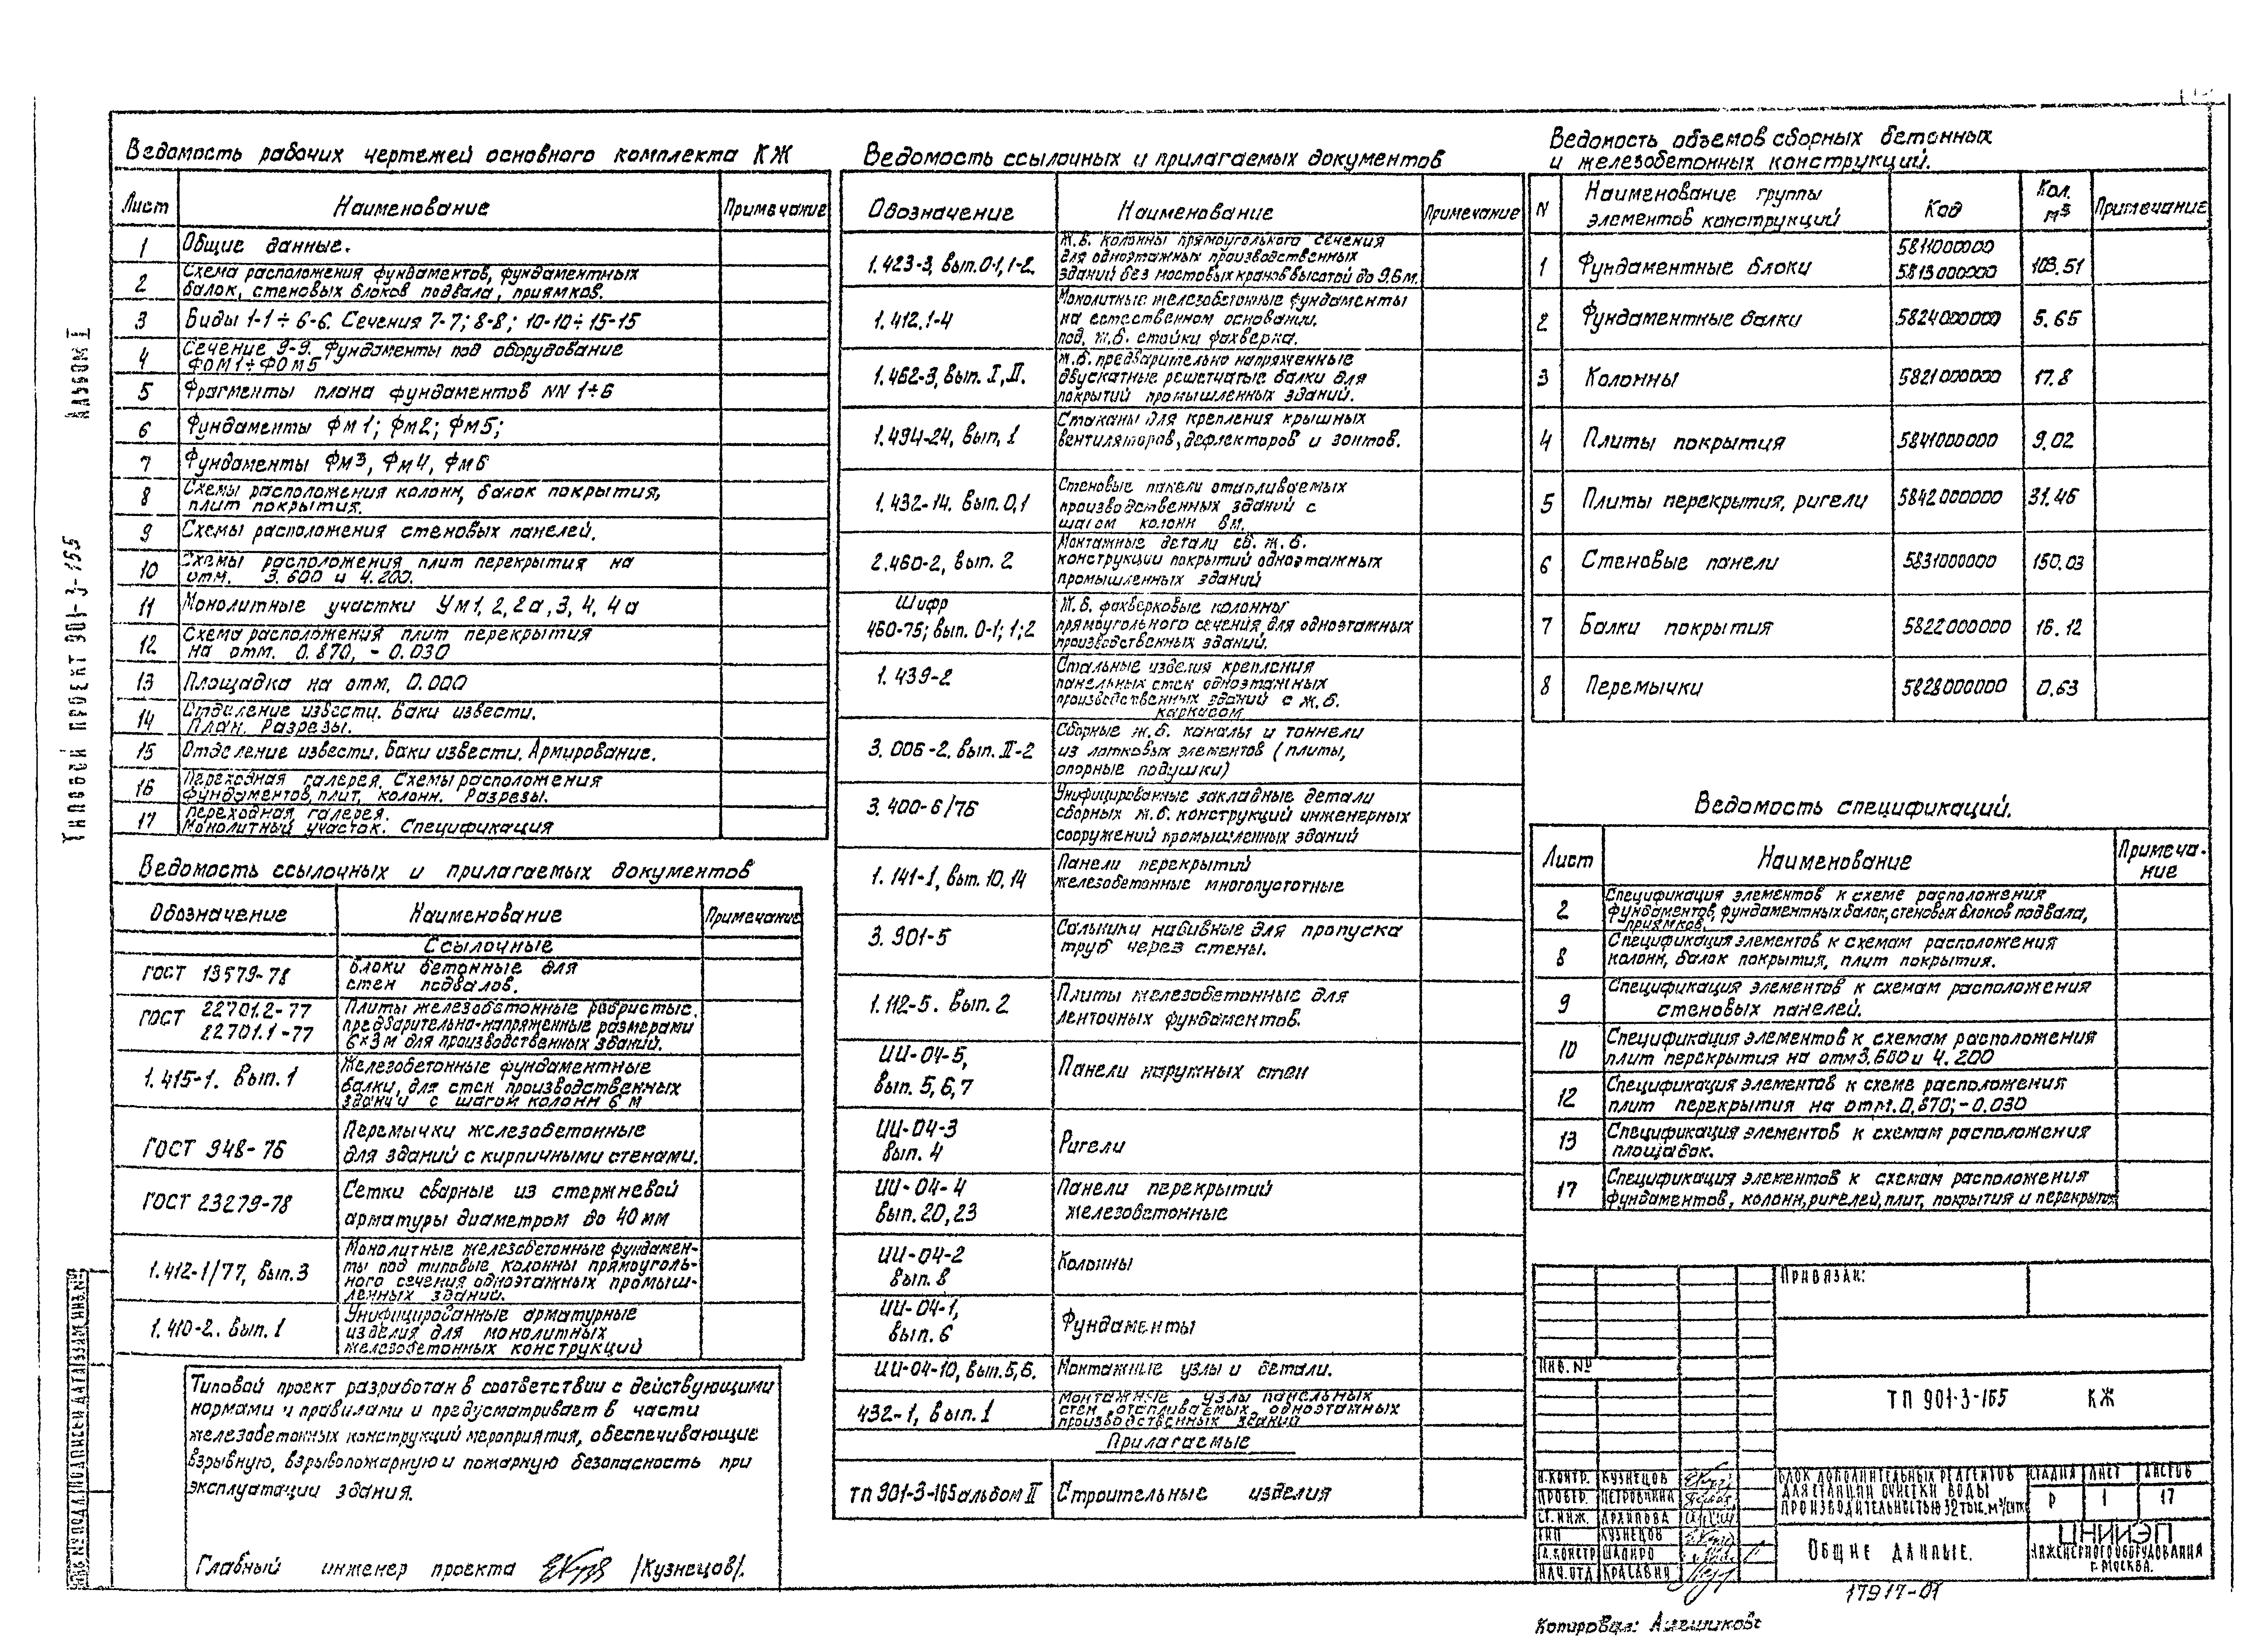 Ведомость рабочих чертежей основного комплекта КЖ
Лист Наименование Примечание
1 Общие данные.
2 Схема расположения фундаментов, фундаментных
балок, стеновых блоков подвала, приямков.
3 Виды 1-1÷6-6. Сечения 7-7; 8-8; 10-10÷15-15
4 Сечение 9-9. Фундаменты под оборудование
ФОМ1÷ФОМ5
5 Фрагменты плана фундаментов NN 1÷6
6 Фундаменты Фм1; Фм2; Фм5;
7 Фундаменты Фм3, Фм4, Фм6
8 Схемы расположения колонн, балок покрытия,
плит покрытия.
9 Схемы расположения стеновых панелей.
10 Схемы расположения плит перекрытия на
отм. 3.600 и 4.200.
11 Монолитные участки Ум1, 2, 2а, 3, 4, 4а
12 Схема расположения плит перекрытия
на отм. 0.870, -0.030
13 Площадка на отм. 0.000
14 Отделение извести. Баки извести.
План. Разрезы.
15 Отделение извести. Баки извести. Армирование.
16 Переходная галерея. Схемы расположения
фундаментов, плит, колонн. Разрезы.
17 Переходная галерея.
Монолитный участок. Спецификация
Ведомость ссылочных и прилагаемых документов
Обозначение Наименование Примечание
Ссылочные
ГОСТ 13579-78 Блоки бетонные для
стен подвалов.
ГОСТ 22701.2-77 22701.1-77 Плиты железобетонные ребристые,
предварительно-напряженные размерами
6×3м для производственных зданий.
1.415-1. вып.1 Железобетонные фундаментные
балки, для стен производственных
зданий с шагом колонн 6 м
ГОСТ 948-76 Перемычки железобетонные
для зданий с кирпичными стенами.
ГОСТ 23279-78 Сетки сварные из стержневой
арматуры диаметром до 40 мм
1.412-1/77, вып.3 Монолитные железобетонные фундамен-
ты под типовые колонны прямоуголь-
ного сечения одноэтажных промыш-
ленных зданий.
1.410-2. вып.1 Унифицированные арматурные
изделия для монолитных
железобетонных конструкций
Типовой проект разработан в соответствии с действующими
нормами и правилами и предусматривает в части
железобетонных конструкций мероприятия, обеспечивающие
взрывную, взрывопожарную и пожарную безопасность при
эксплуатации здания.
Главный инженер проекта /Кузнецов/.
Ведомость ссылочных и прилагаемых документов
Обозначение Наименование Примечание
1.423-3, вып.0-1, 1-2. Ж.б. колонны прямоугольного сечения
для одноэтажных производственных
зданий без мостовых кранов высотой до 9.6м.
1.412.1-4 Монолитные железобетонные фундаменты
на естественном основании.
под. ж.б. стойки фахверка.
1.462-3, вып. I, II. Ж.б. предварительно напряженные
двускатные решетчатые балки для
покрытий промышленных зданий.
1.494-24, вып, 1 Стаканы для крепления крышных
вентиляторов, дефлекторов и зонтов.
1.432-14. вып.0,1 Стеновые панели отапливаемых
производственных зданий с
шагом колонн 6м.
2.460-2, вып. 2 Монтажные детали сб. ж.б.
конструкции покрытий одноэтажных
промышленных зданий
Шифр
460-75; вып. 0-1; 1; 2 Ж.б. фахверковые колонны
прямоугольного сечения для одноэтажных
производственных зданий.
1.439-2 Стальные изделия крепления
панельных стен одноэтажных
производственных зданий с ж.б.
каркасом
3.006-2. вып. II-2 Сборные ж.б. каналы и тоннели
из лотковых элементов (плиты,
опорные подушки)
3.400-6/76 Унифицированные закладные детали
сборных ж.б. конструкций инженерных
сооружений промышленных зданий
1.141-1, вып. 10, 14 Панели перекрытий
железобетонные многопустотные
3.901-5 Сальники набивные для пропуска
труб через стены.
1.112-5. вып. 2 Плиты железобетонные для
ленточных фундаментов.
ИИ-04-5,
вып. 5, 6, 7 Панели наружных стен
ИИ-04-3
вып. 4 Ригели
ИИ-04-4
вып. 20, 23 Панели перекрытий
железобетонные
ИИ-04-2
вып. 8 Колонны
ИИ-04-1,
вып. 6 Фундаменты
ИИ-04-10, вып.5,6. Монтажные узлы и детали.
432-1, вып.1 Монтажные узлы панельных
стен отапливаемых одноэтажных
производственных зданий
Прилагаемые
тп 901-3-165 альбом II Строительные изделия
Ведомость объемов сборных бетонных
и железобетонных конструкций.
N Наименование группы элементов конструкций Код Кол. м³ Примечание
1 Фундаментные блоки 5811000000 5813000000 103.51
2 Фундаментные балки 5824000000 5.65
3 Колонны 5821000000 17.8
4 Плиты покрытия 5841000000 9.02
5 Плиты перекрытия, ригели 5842000000 31.46
6 Стеновые панели 5831000000 150.03
7 Балки покрытия 5822000000 16.12
8 Перемычки 5828000000 0.63
Ведомость спецификаций.
Лист Наименование Примеча-
ние
2 Спецификация элементов к схеме расположения
фундаментов, фундаментных балок, стеновых блоков подвала,
приямков.
8 Спецификация элементов к схемам расположения
колонн, балок покрытия, плит покрытия.
9 Спецификация элементов к схемам расположения
стеновых панелей.
10 Спецификация элементов к схемам расположения
плит перекрытия на отм 3.600 и 4.200
12 Спецификация элементов к схеме расположения
плит перекрытия на отм. 0,870; -0.030
13 Спецификация элементов к схемам расположения
площадок.
17 Спецификация элементов к схемам расположения
фундаментов, колонн, ригелей, плит, покрытия и перекрытия
Привязан:
Инв. №
ТП 901-3-165 КЖ
Н.контр. Кузнецов
Провер. Петровичина
Ст.инж. Архипова
ГИП Кузнецов
Гл.констр Шапиро
Нач.отд Красавин
Блок дополнительных реагентов
для станции очистки воды
производительностью 32 тыс. м³/сутк
Стадия Лист Листов
Р 1 17
Общие данные.
ЦНИИЭП
инженерного оборудования
г. Москва.
17917-01
Копировал:
Типовой проект 901-3-165 Альбом I
Инв № подл. Подпись и дата Взам инв.№